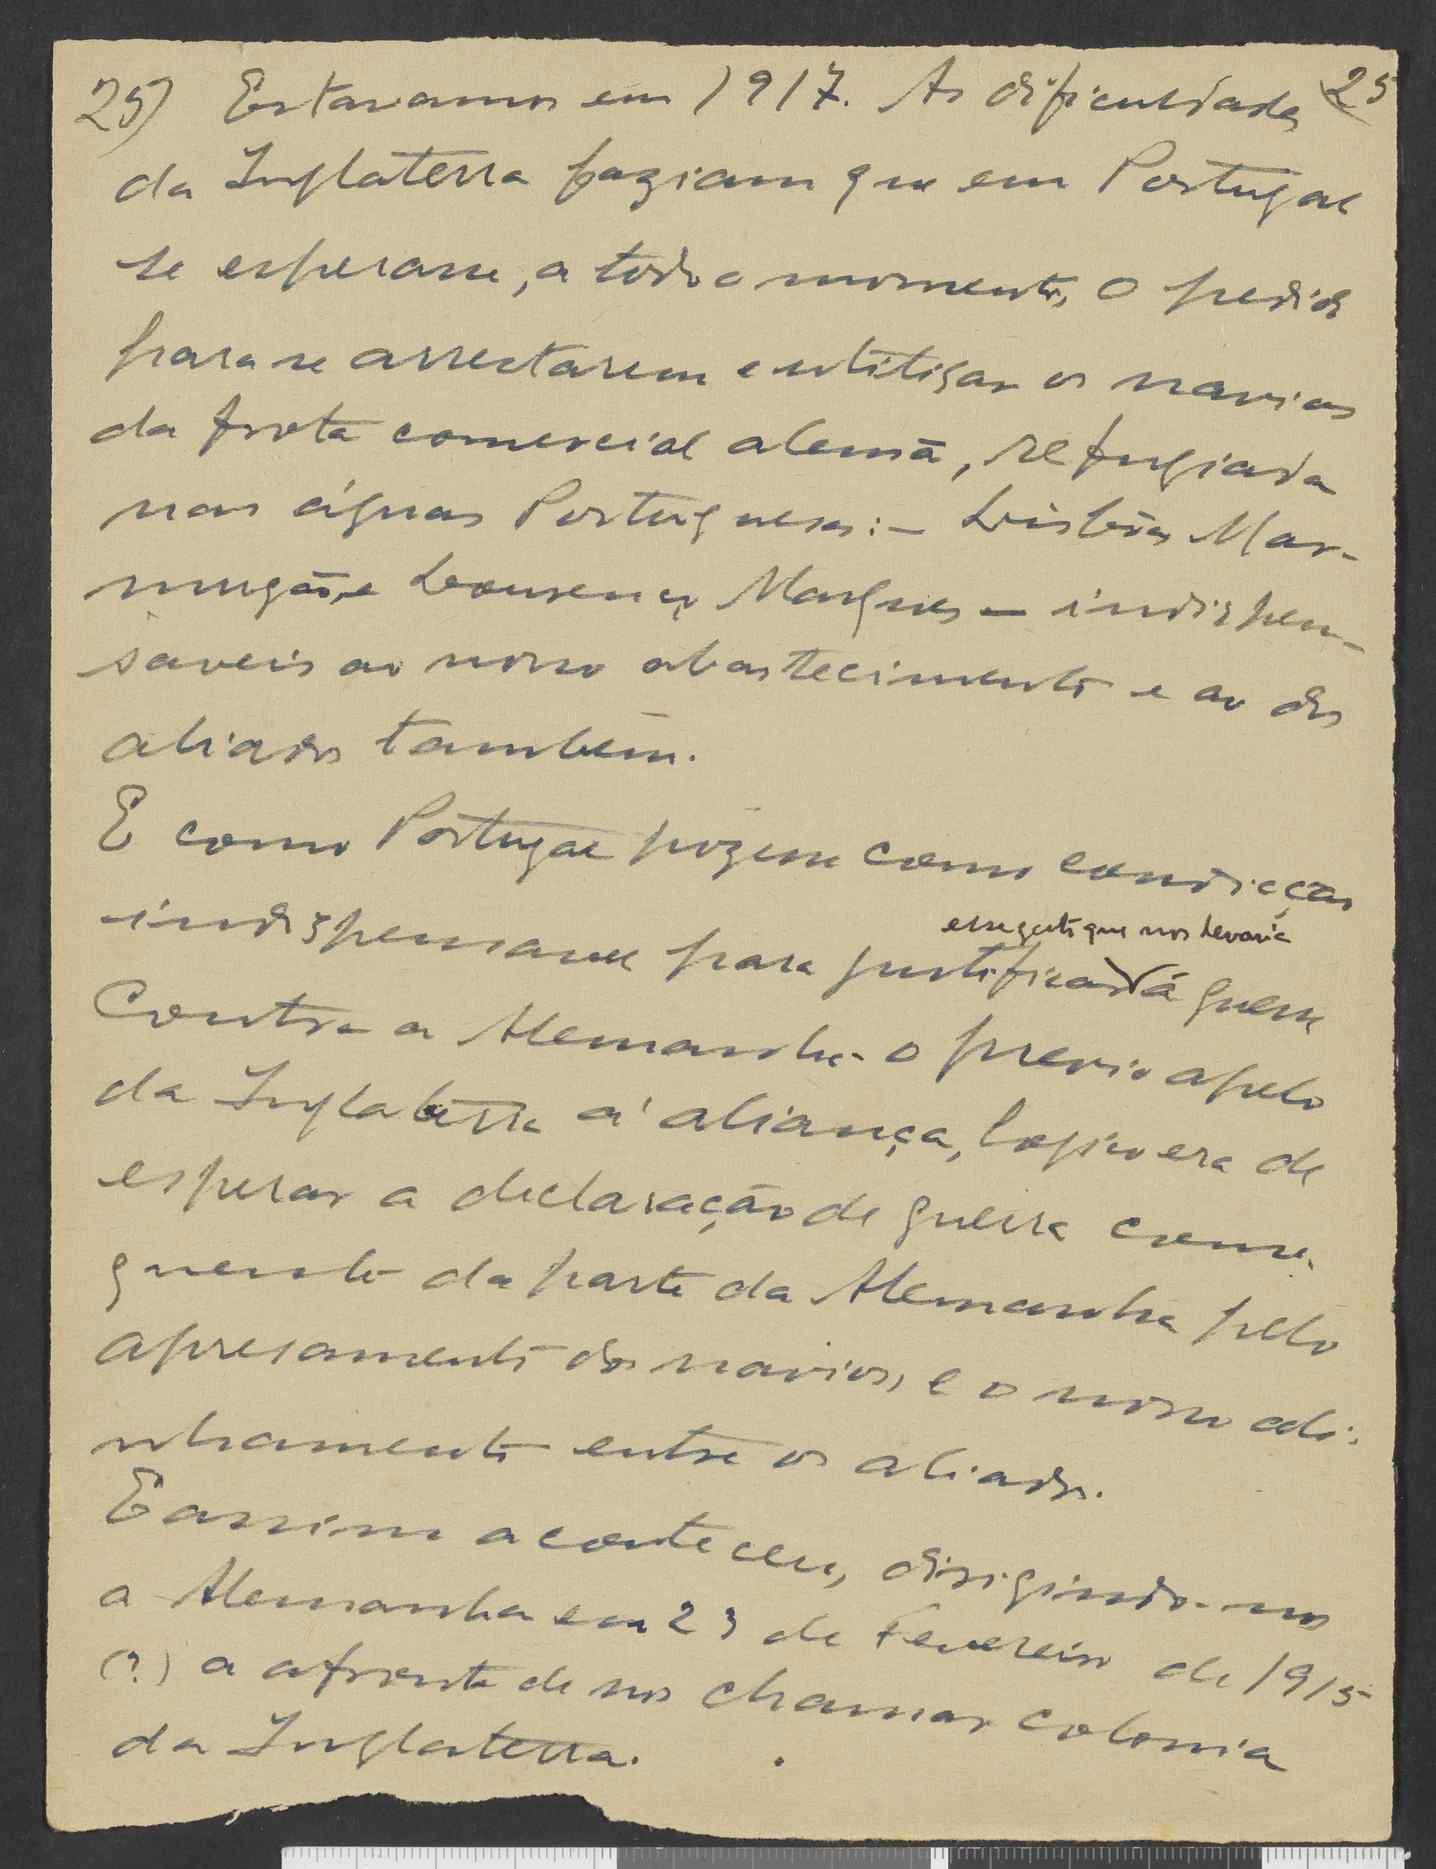 25) Estavamos em 1917. As dificuldades 25
da Inglaterra faziam que em Portugal
se esperasse, a todo o momento, o pedido
para se arrestarem e utilizar os navios
da frota comercial alemã, refugiada
nas águas Portuguesas:- Lisbôa, Mar-
mugão, e Lourenço Marques — indispen-
saveis ao nosso abastecimento e ao dos
aliados tambêm.
E como Portugal pozesse como condicção
indispensavel para justificar esse gesto que nos levaria á guerra
Contra a Alemanha - o previo apelo
da Inglaterra á aliança, logico era de
esperar a declaração de guerra conse-
quente da parte da Alemanha pelo
apresamento dos navios, e o nosso ali-
nhamento entre os aliados.
E assim aconteceu, dirigindo-nos
a Alemanha em 23 de Fevereiro de 1915
(?) a afronta de nos chamar colonia
da Inglaterra.